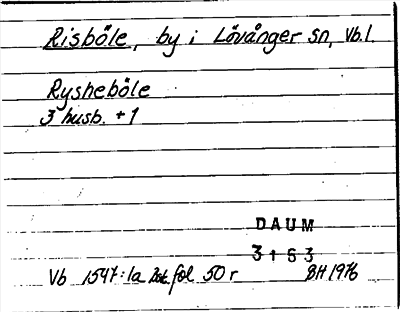 Risböle, by i Lövånger sn, Vb.l.
Rysheböle
3 husb. + 1
DAUM
3163
Vb 1547:1a fol 50 r BH 1976